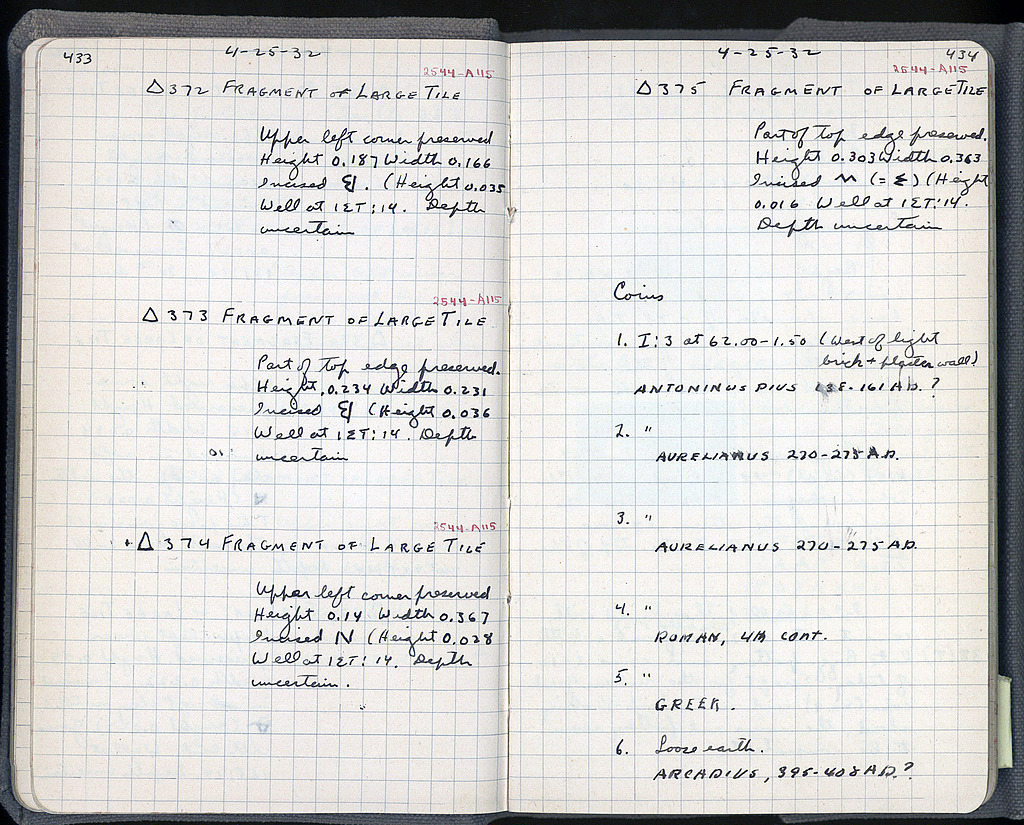 433
4-25-32
2544-A115
Δ372 FRAGMENT OF LARGE TILE
Upper left corner preserved
Height 0.187 Width 0.166
Incised . (Height 0.035
Well at IΣT:14. Depth
uncertain
2544-A115
Δ373 FRAGMENT OF LARGE TILE
Part of top edge preserved.
Height 0.234 Width 0.231
Incised (Height 0.036
Well at IΣT:14. Depth
uncertain
2544-A115
Δ374 FRAGMENT OF LARGE TILE
Upper left corner preserved
Height 0.14 Width 0.367
Incised N (Height 0.028
Well at IΣT:14. Depth
uncertain.
4-25-32
434
2544-A115
Δ375 FRAGMENT OF LARGE TILE
Part of top edge preserved.
Height 0.303 Width 0.363
Incised (= Σ) (Height
0.016 Well at IΣT:14.
Depth uncertain
Coins
1. I:3 at 62.00-1.50 (West of light
brick + plaster wall)
ANTONINUS PIUS 138-161 A.D.?
2. "
AURELIANUS 270-275 A.D.
3. "
AURELIANUS 270-275 A.D.
4. "
ROMAN, 4th CENT.
5. "
GREEK.
6. Loose earth.
ARCADIUS, 395-408 A.D.?